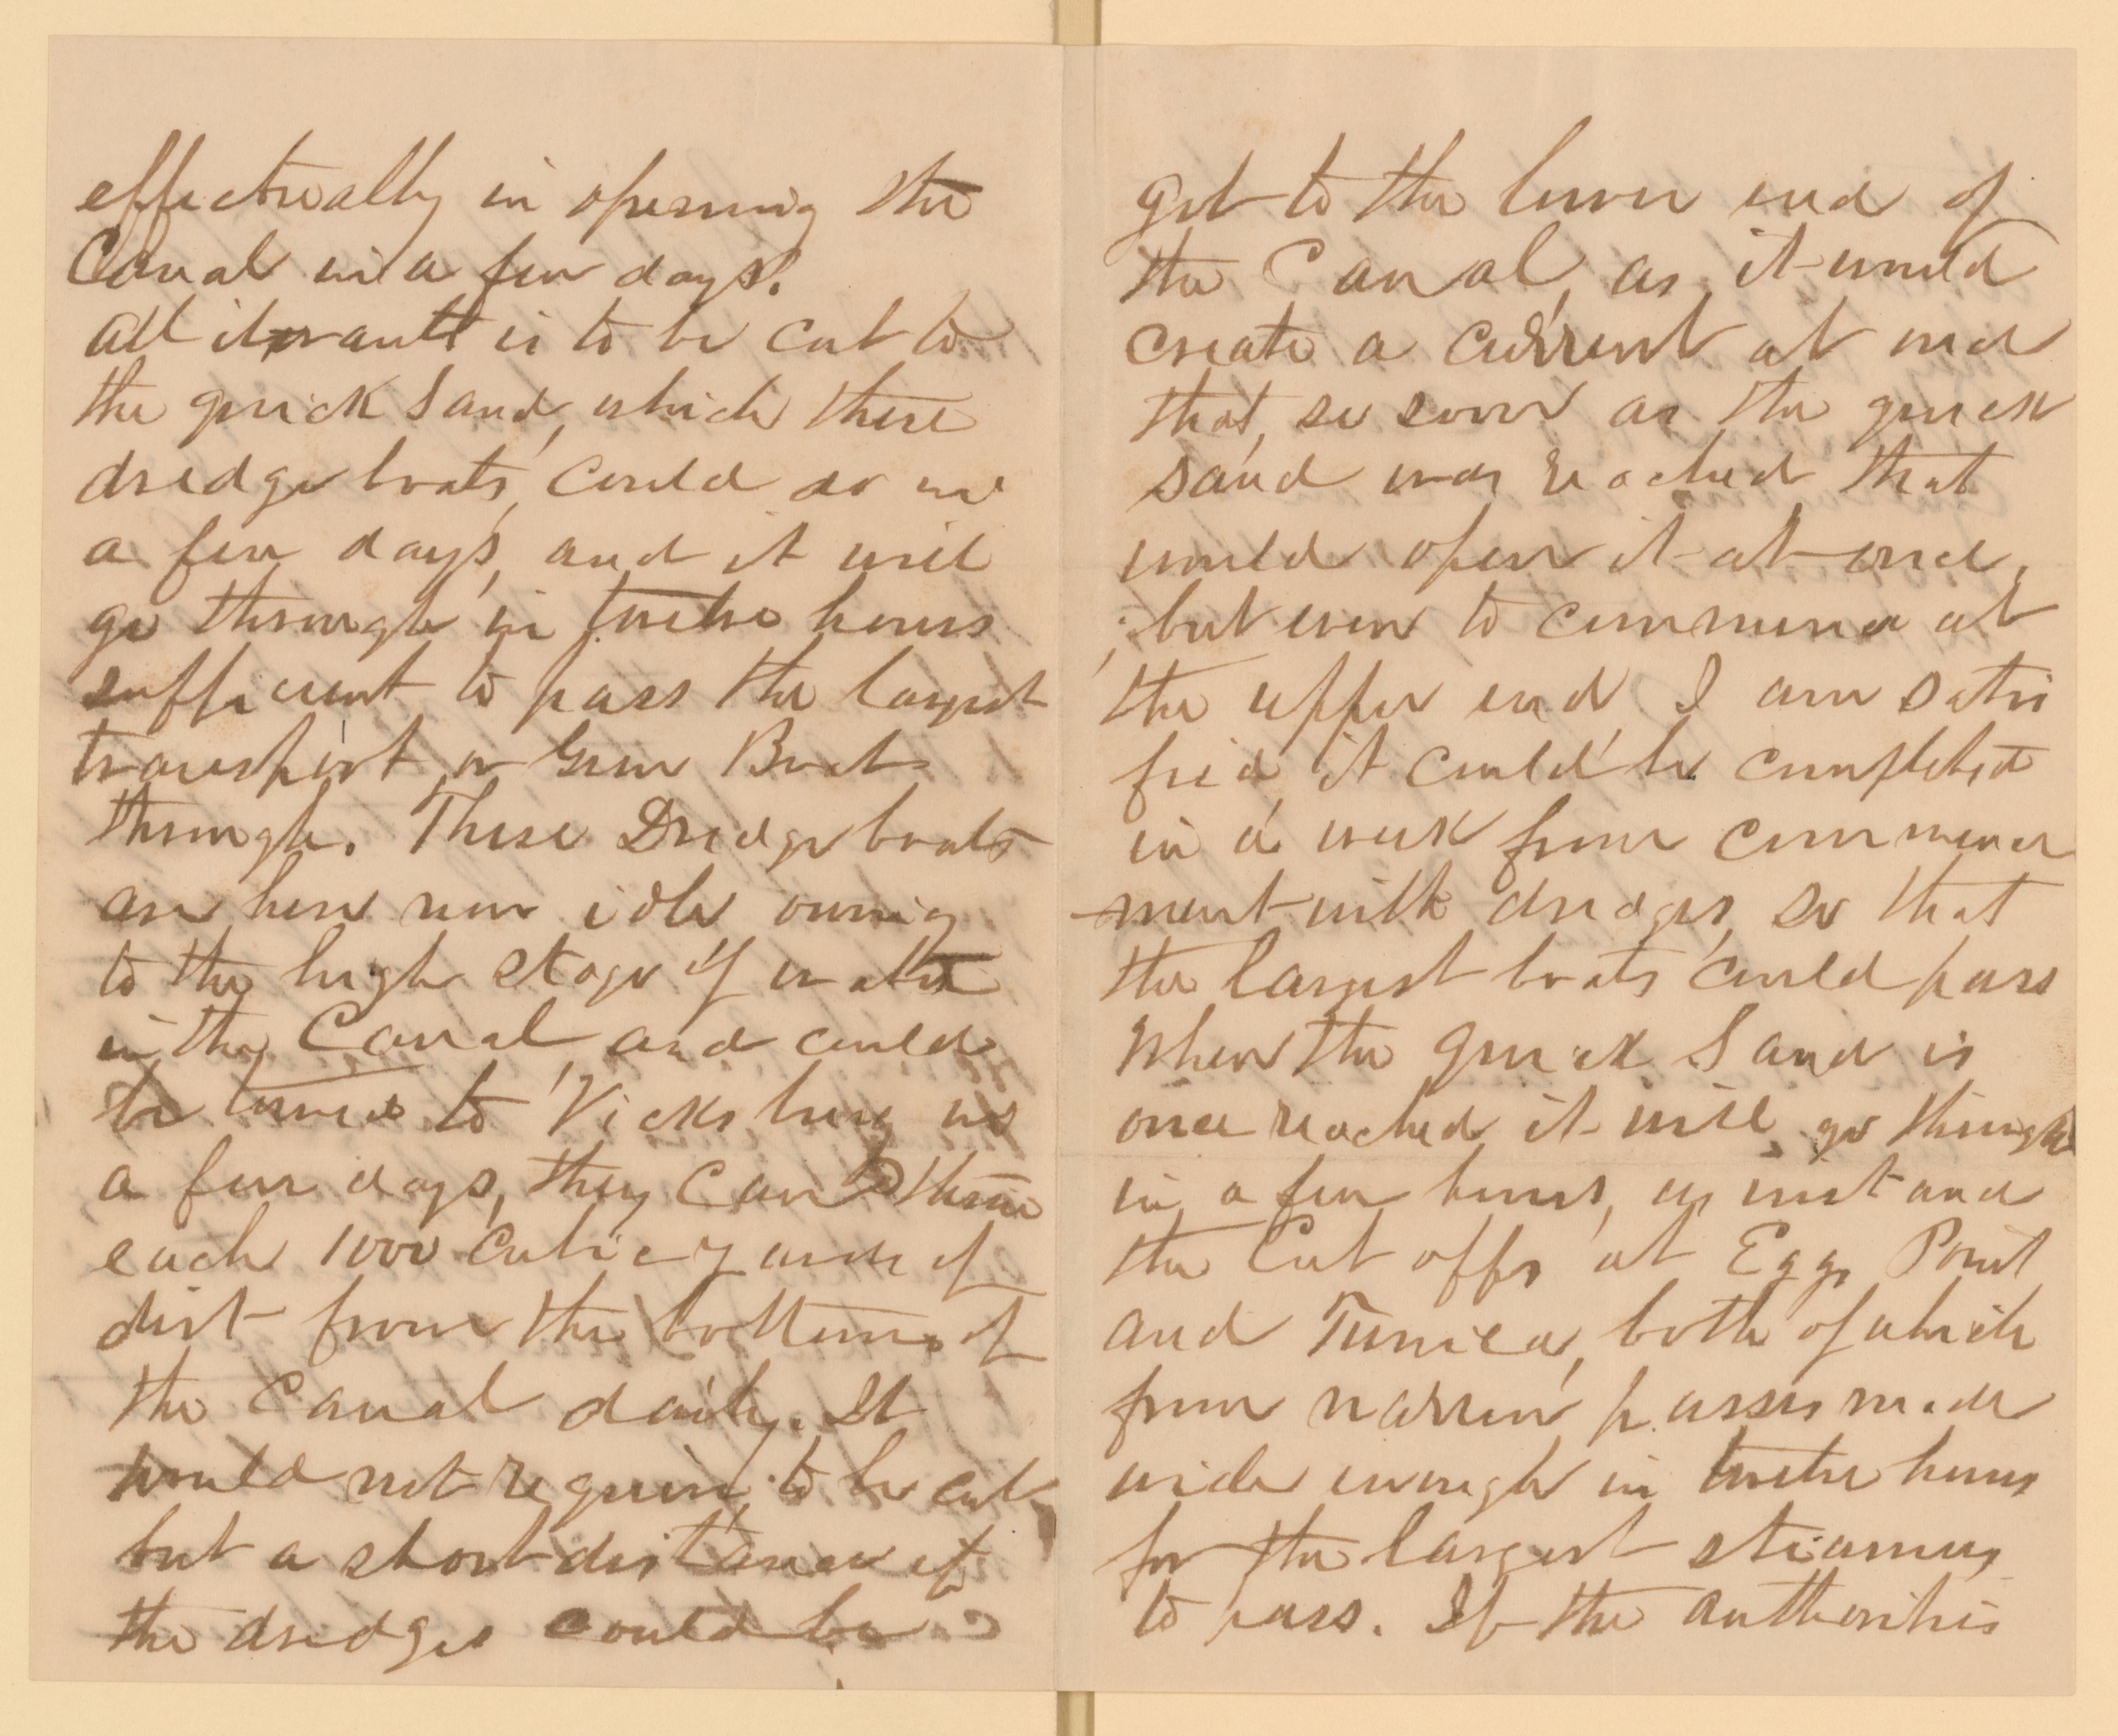 effectually in opening the
Canal in a few days.
All it wants is to be cut to
the quick Sand, which these
dredge boats, could do in
a few days, and it will
go through in twelve hours
sufficient to pass the largest
transport or Gun Boats
through. These Dredge boats
are here now idle owing
to the high stage of water
in the Canal, and could
be towed to Vicksburg in
a few days, they can throw
each 1000 cubic yards of
dirt from the bottom of
the Canal daily. It
would not require, to be cut
but a short distance if
the dredges could be
got to the lower end of
the Canal, as, it would
create a current at once
that, so soon as the quick
sand was reached that
would open it at once,
but even to commence at
the upper end, I am satis
fied, it could be completed
in a week from commence
ment with dredges, so that
the largest boats could pass
When the quick Sand is
once reached, it will go through
in a few hours, as instance
the Cut offs at Eggs Point
and Tunica, both of which
from narrow passes made
wide enough in twelve hours
for the largest steamers
to pass. If the authorities